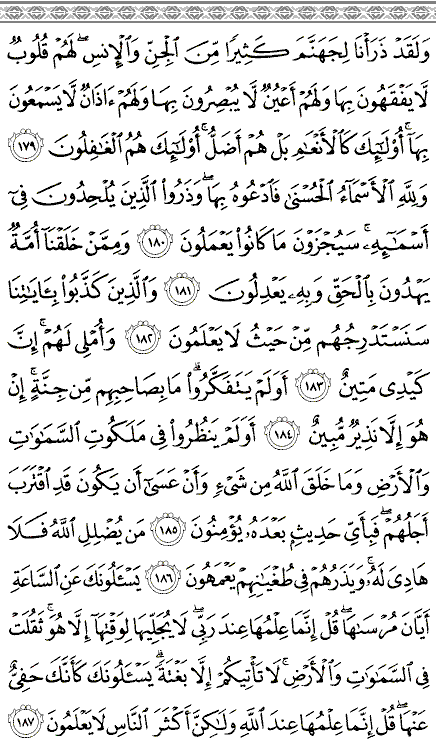 وَلَقَدْ ذَرَأْنَا لِجَهَنَّمَ كَثِيرًا مِّنَ الْجِنِّ وَالْإِنسِ ۖ لَهُمْ قُلُوبٌ
لَّا يَفْقَهُونَ بِهَا وَلَهُمْ أَعْيُنٌ لَّا يُبْصِرُونَ بِهَا وَلَهُمْ ءَاذَانٌ لَّا يَسْمَعُونَ
بِهَا ۚ أُو۟لَٰٓئِكَ كَالْأَنْعَٰمِ بَلْ هُمْ أَضَلُّ ۚ أُو۟لَٰٓئِكَ هُمُ الْغَٰفِلُونَ ١٧٩
وَلِلَّهِ الْأَسْمَآءُ الْحُسْنَىٰ فَادْعُوهُ بِهَا ۖ وَذَرُوا۟ الَّذِينَ يُلْحِدُونَ فِىٓ
أَسْمَٰٓئِهِۦ ۚ سَيُجْزَوْنَ مَا كَانُوا۟ يَعْمَلُونَ ١٨٠ وَمِمَّنْ خَلَقْنَآ أُمَّةٌ
يَهْدُونَ بِالْحَقِّ وَبِهِۦ يَعْدِلُونَ ١٨١ وَالَّذِينَ كَذَّبُوا۟ بِـَٔايَٰتِنَا
سَنَسْتَدْرِجُهُم مِّنْ حَيْثُ لَا يَعْلَمُونَ ١٨٢ وَأُمْلِى لَهُمْ ۚ إِنَّ
كَيْدِى مَتِينٌ ١٨٣ أَوَلَمْ يَتَفَكَّرُوا۟ ۗ مَا بِصَاحِبِهِم مِّن جِنَّةٍ ۚ إِنْ
هُوَ إِلَّا نَذِيرٌ مُّبِينٌ ١٨٤ أَوَلَمْ يَنظُرُوا۟ فِى مَلَكُوتِ السَّمَٰوَٰتِ
وَالْأَرْضِ وَمَا خَلَقَ اللَّهُ مِن شَىْءٍ وَأَنْ عَسَىٰٓ أَن يَكُونَ قَدِ اقْتَرَبَ
أَجَلُهُمْ ۖ فَبِأَىِّ حَدِيثٍۭ بَعْدَهُۥ يُؤْمِنُونَ ١٨٥ مَن يُضْلِلِ اللَّهُ فَلَا
هَادِىَ لَهُۥ ۚ وَيَذَرُهُمْ فِى طُغْيَٰنِهِمْ يَعْمَهُونَ ١٨٦ يَسْـَٔلُونَكَ عَنِ السَّاعَةِ
أَيَّانَ مُرْسَىٰهَا ۖ قُلْ إِنَّمَا عِلْمُهَا عِندَ رَبِّى ۖ لَا يُجَلِّيهَا لِوَقْتِهَآ إِلَّا هُوَ ۚ ثَقُلَتْ
فِى السَّمَٰوَٰتِ وَالْأَرْضِ ۚ لَا تَأْتِيكُمْ إِلَّا بَغْتَةً ۗ يَسْـَٔلُونَكَ كَأَنَّكَ حَفِىٌّ
عَنْهَا ۖ قُلْ إِنَّمَا عِلْمُهَا عِندَ اللَّهِ وَلَٰكِنَّ أَكْثَرَ النَّاسِ لَا يَعْلَمُونَ ١٨٧